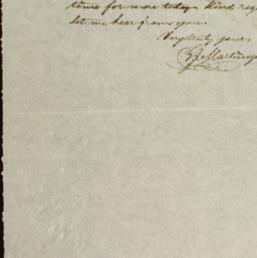 time for more today. Kind reg
let me hear from you.
Very truly yours